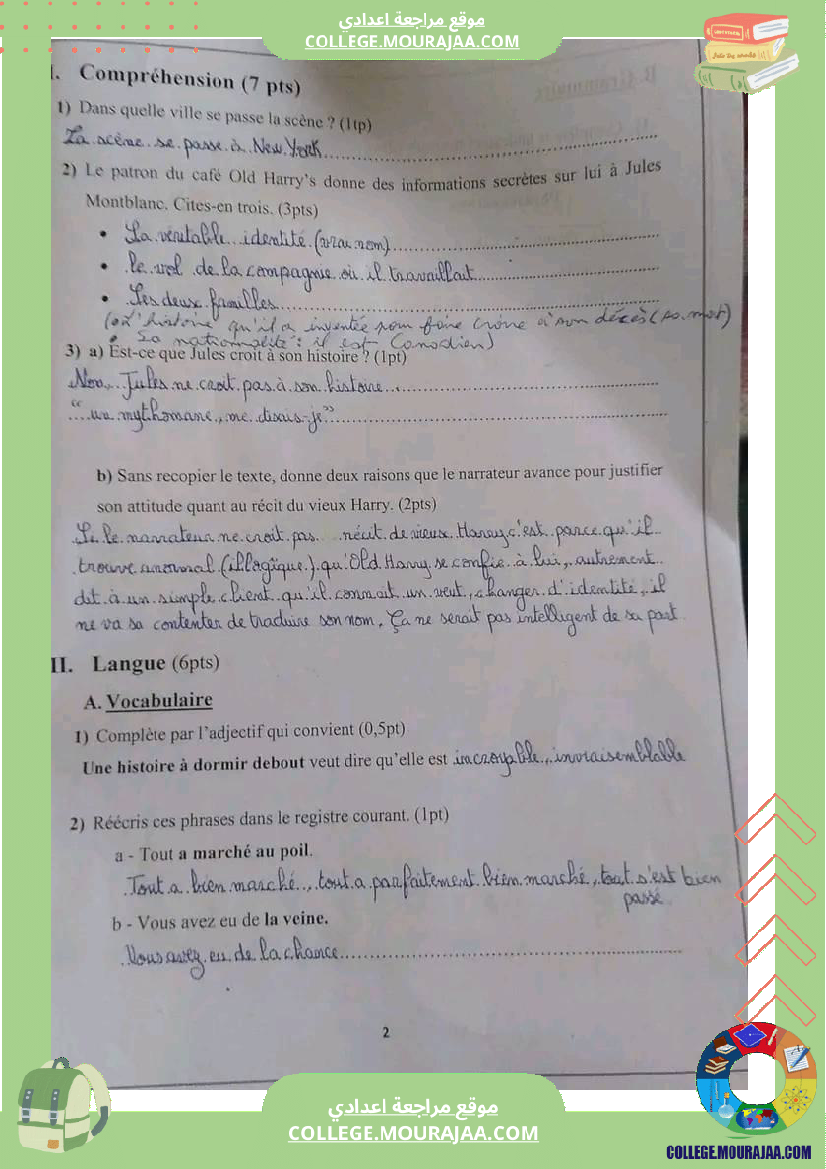 موقع مراجعة اعدادي
COLLEGE.MOURAJAA.COM
I. Compréhension (7 pts)
1) Dans quelle ville se passe la scène ? (1tp)
La scène se passe à New York
2) Le patron du café Old Harry's donne des informations secrètes sur lui à Jules
Montblanc. Cites-en trois. (3pts)
• La véritable identité (vrai nom)
• le vol de la compagnie où il travaillait
• Ses deux familles
(ou l'histoire qu'il a inventée pour faire croire à son décès (sa mort)
• Sa nationnalité : il est Canadien)
3) a) Est-ce que Jules croit à son histoire ? (1pt)
Non, Jules ne croit pas à son histoire
"un mythomane, me disais-je"
b) Sans recopier le texte, donne deux raisons que le narrateur avance pour justifier
son attitude quant au récit du vieux Harry. (2pts)
Si le narrateur ne croit pas récit de vieux Harry c'est parce qu'il
trouve anormal (illogique) qu'Old Harry se confie à lui, autrement
dit à un simple client qu'il connait un veut, changer d'identité, il
ne va sa contenter de traduire son nom. Ça ne serait pas intelligent de sa part
II. Langue (6pts)
A. Vocabulaire
1) Complète par l'adjectif qui convient (0,5pt)
Une histoire à dormir debout veut dire qu'elle est incroyable, invraisemblable
2) Réécris ces phrases dans le registre courant. (1pt)
a - Tout a marché au poil.
Tout a bien marché, tout a parfaitement bien marché, tout s'est bien
passé
b - Vous avez eu de la veine.
Vous avez eu de la chance
2
موقع مراجعة اعدادي
COLLEGE.MOURAJAA.COM
COLLEGE.MOURAJAA.COM